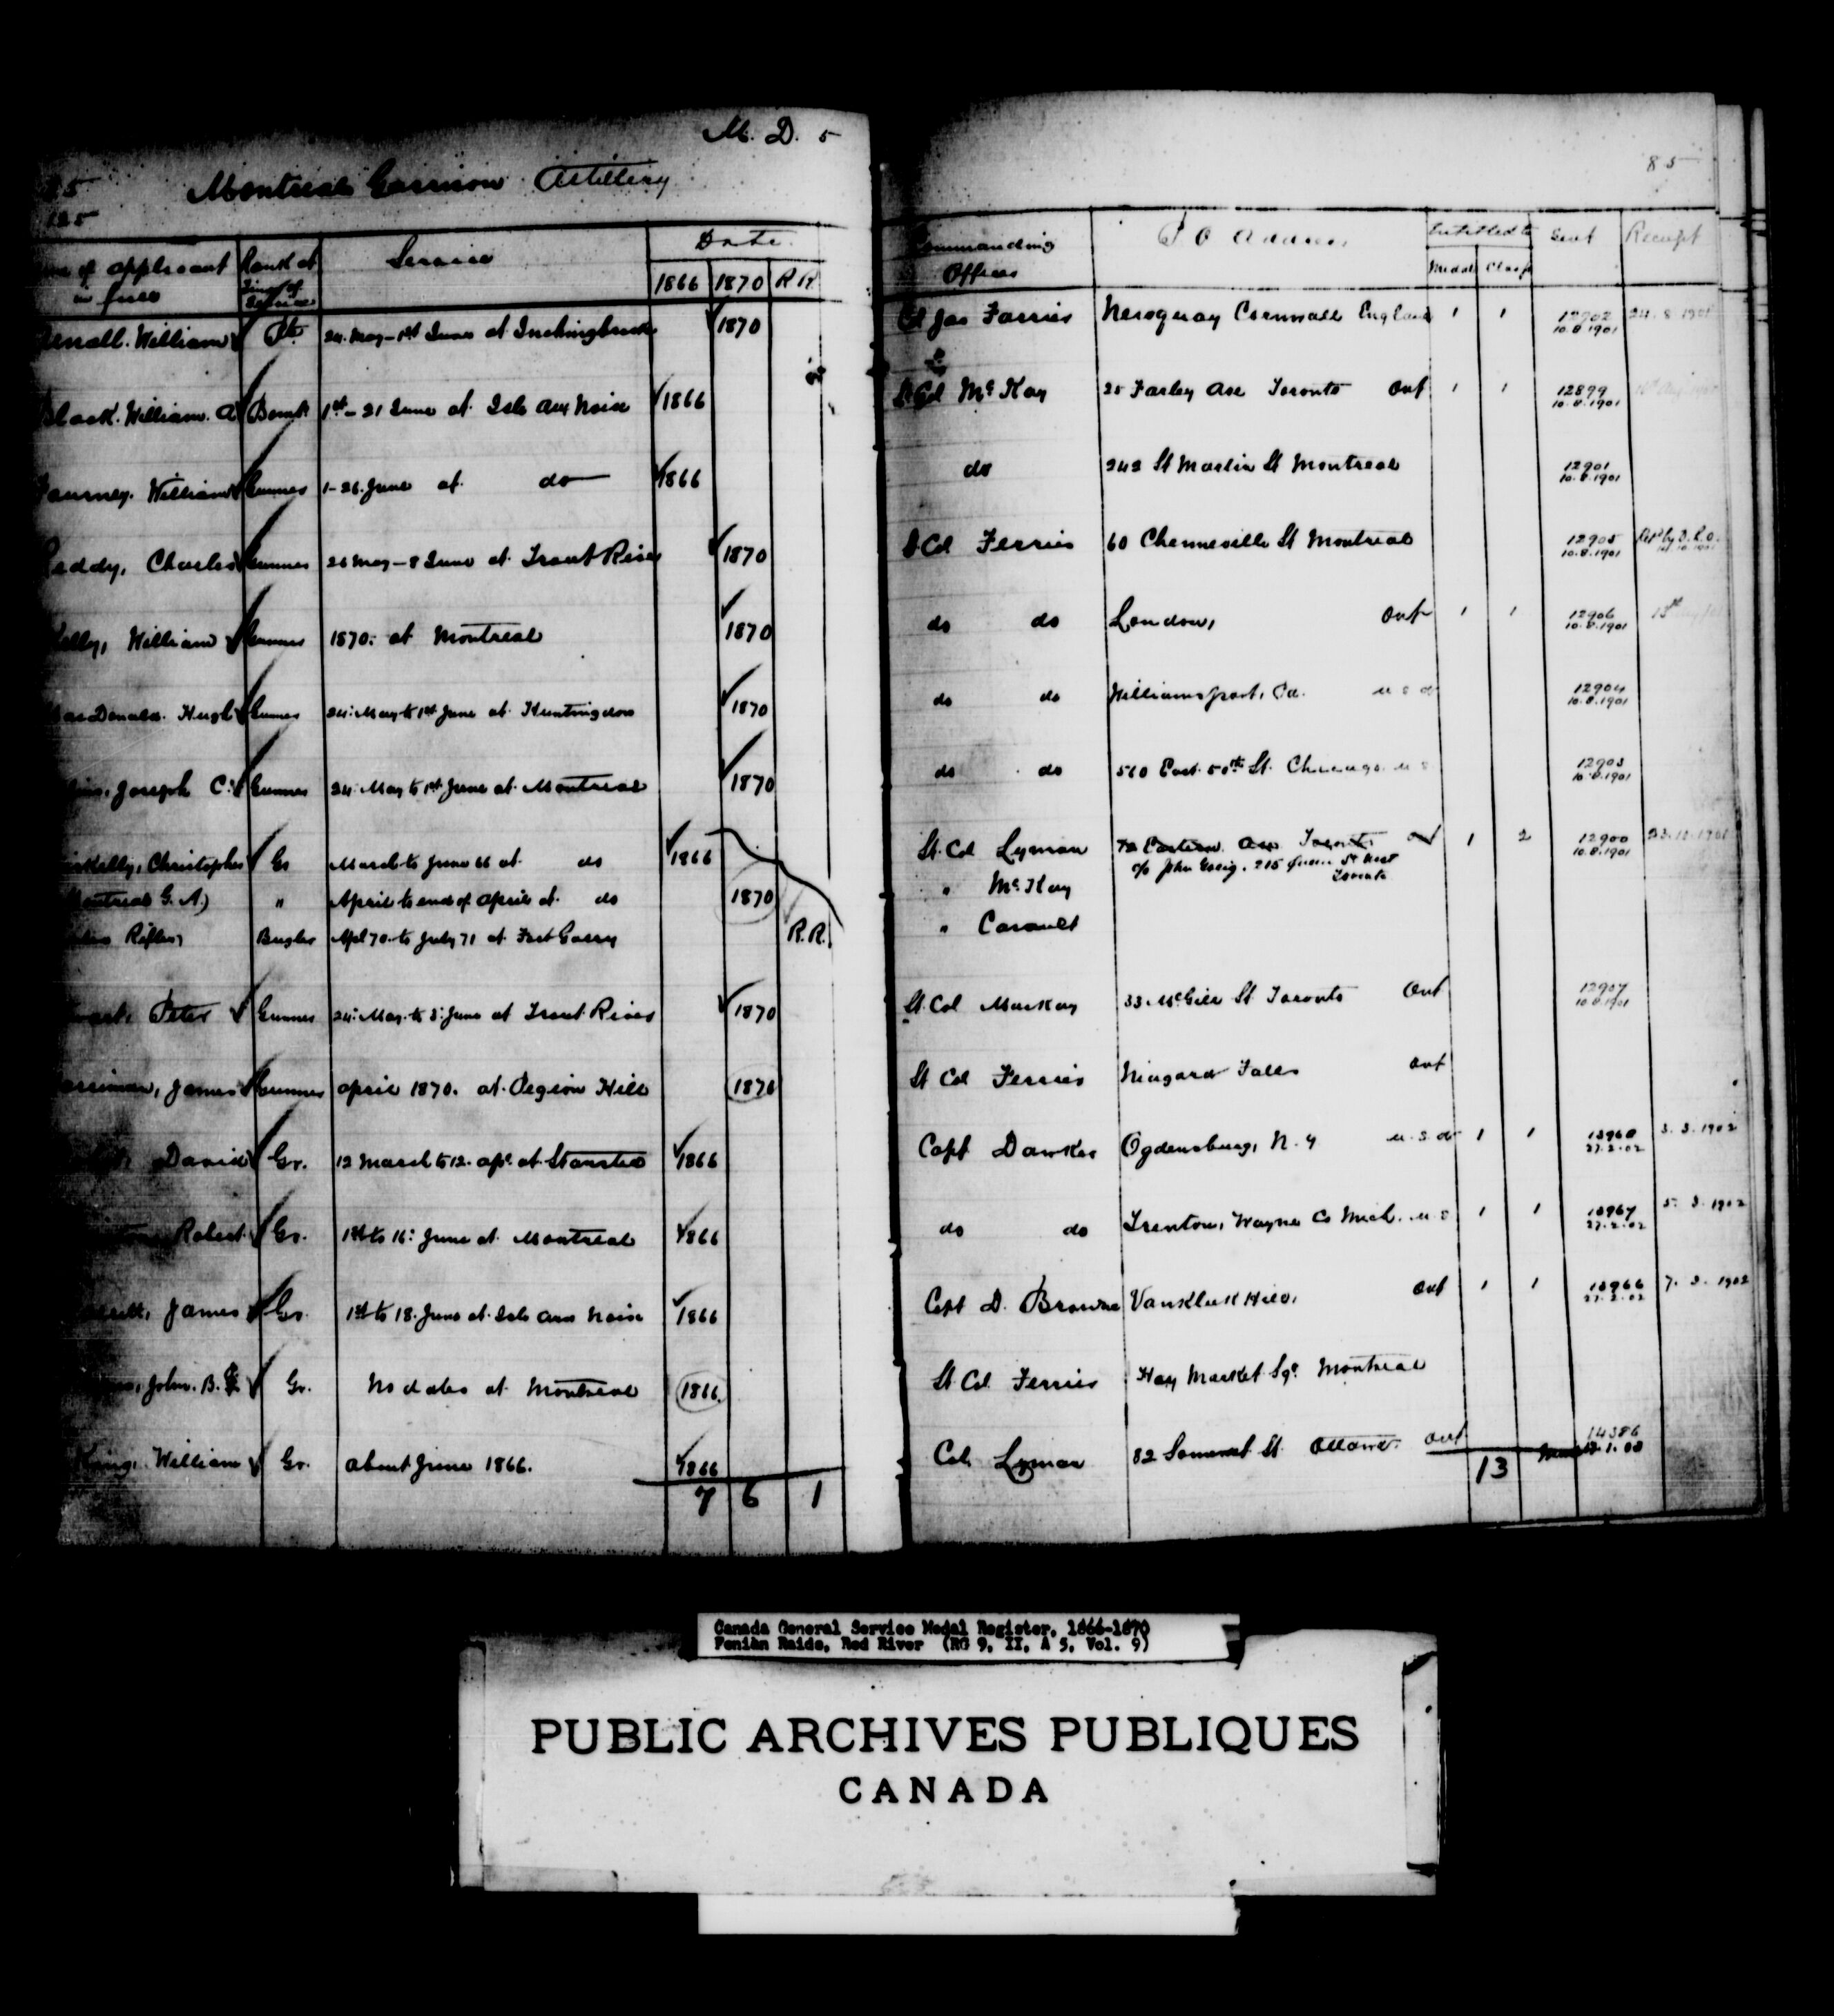 M. D. 5
85
125
Montreal Garrison Artillery
85
of applicant in full
Rank at Time of Service
Service
Date
1866 1870 R R
Commanding Officer
P O Address
Entitled to
Medal Clasp
Sent
Receipt
William Pte 24 May – 1st June at 1870
Col Jas Ferries Cornwall England 1 1 12902 10.8.1901 24.8.1901
Black. William. A Bomb 1st – 21 June at Isle Aux Noix 1866
Lt Col McKay 25 Farley Ave Toronto Ont 1 1 12899 10.8.1901
William Gunner 1–26 June at do 1866
do 242 St Martin St Montreal 12901 10.8.1901
Charles Gunner 26 May – 8 June at Trout River 1870
Lt Col Ferries 60 Chenneville St Montreal 12905 10.8.1901
William Gunner 1870. at Montreal 1870
do do London, Ont 1 1 12906 10.8.1901
MacDonald. Hugh Gunner 24 May to 1st June at Huntingdon 1870
do do Williamsport, Pa. U S A 12904 10.8.1901
Joseph C. Gunner 24 May to 1st June at Montreal 1870
do do 560 East 50th St. Chicago U S 12903 10.8.1901
Christopher Gr March to June 66 at do 1866
Lt. Col Lyman 72 Ave Toronto Ont 1 2 12900 10.8.1901 23.12.1901
c/o John Greig. 215 Queen St West Toronto
Montreal G. A.) " April to end of April at do 1870
" McKay
Rifles) Bugler Apl 70 to July 71 at Fort Garry R.R.
" Casault
Peter Gunner 24 May to 3 June at Trout River 1870
Lt. Col MacKay 33 McGill St Toronto Ont 12907 10.8.1901
James Gunner April 1870. at Pegion Hill 1870
Lt Col Ferries Niagara Falls Ont
David Gr. 12 March to 12 apl at Stanstead 1866
Capt Dawkes Ogdensburg, N. Y U.S.A 1 1 13968 27.2.02 3.3.1902
Robert Gr. 1st to 16 June at Montreal 1866
do do Trenton, Wayne Co Mich. U S 1 1 13967 27.2.02 5.3.1902
James Gr. 1st to 18 June at Isle aux Noix 1866
Capt D. Browne Vankleek Hill, Ont 1 1 13966 27.2.02 7.3.1902
John. B. Gr. No dates at Montreal 1866
Lt Col Ferries Hay Market Sqr Montreal
King. William Gr. About June 1866. 1866
Col. Lyman 82 Somerset St. Ottawa Ont 14386
7 6 1
13
Canada General Service Medal Register, 1866-1870
Fenian Raids, Red River (RG 9, II, A 5, Vol. 9)
PUBLIC ARCHIVES PUBLIQUES
CANADA